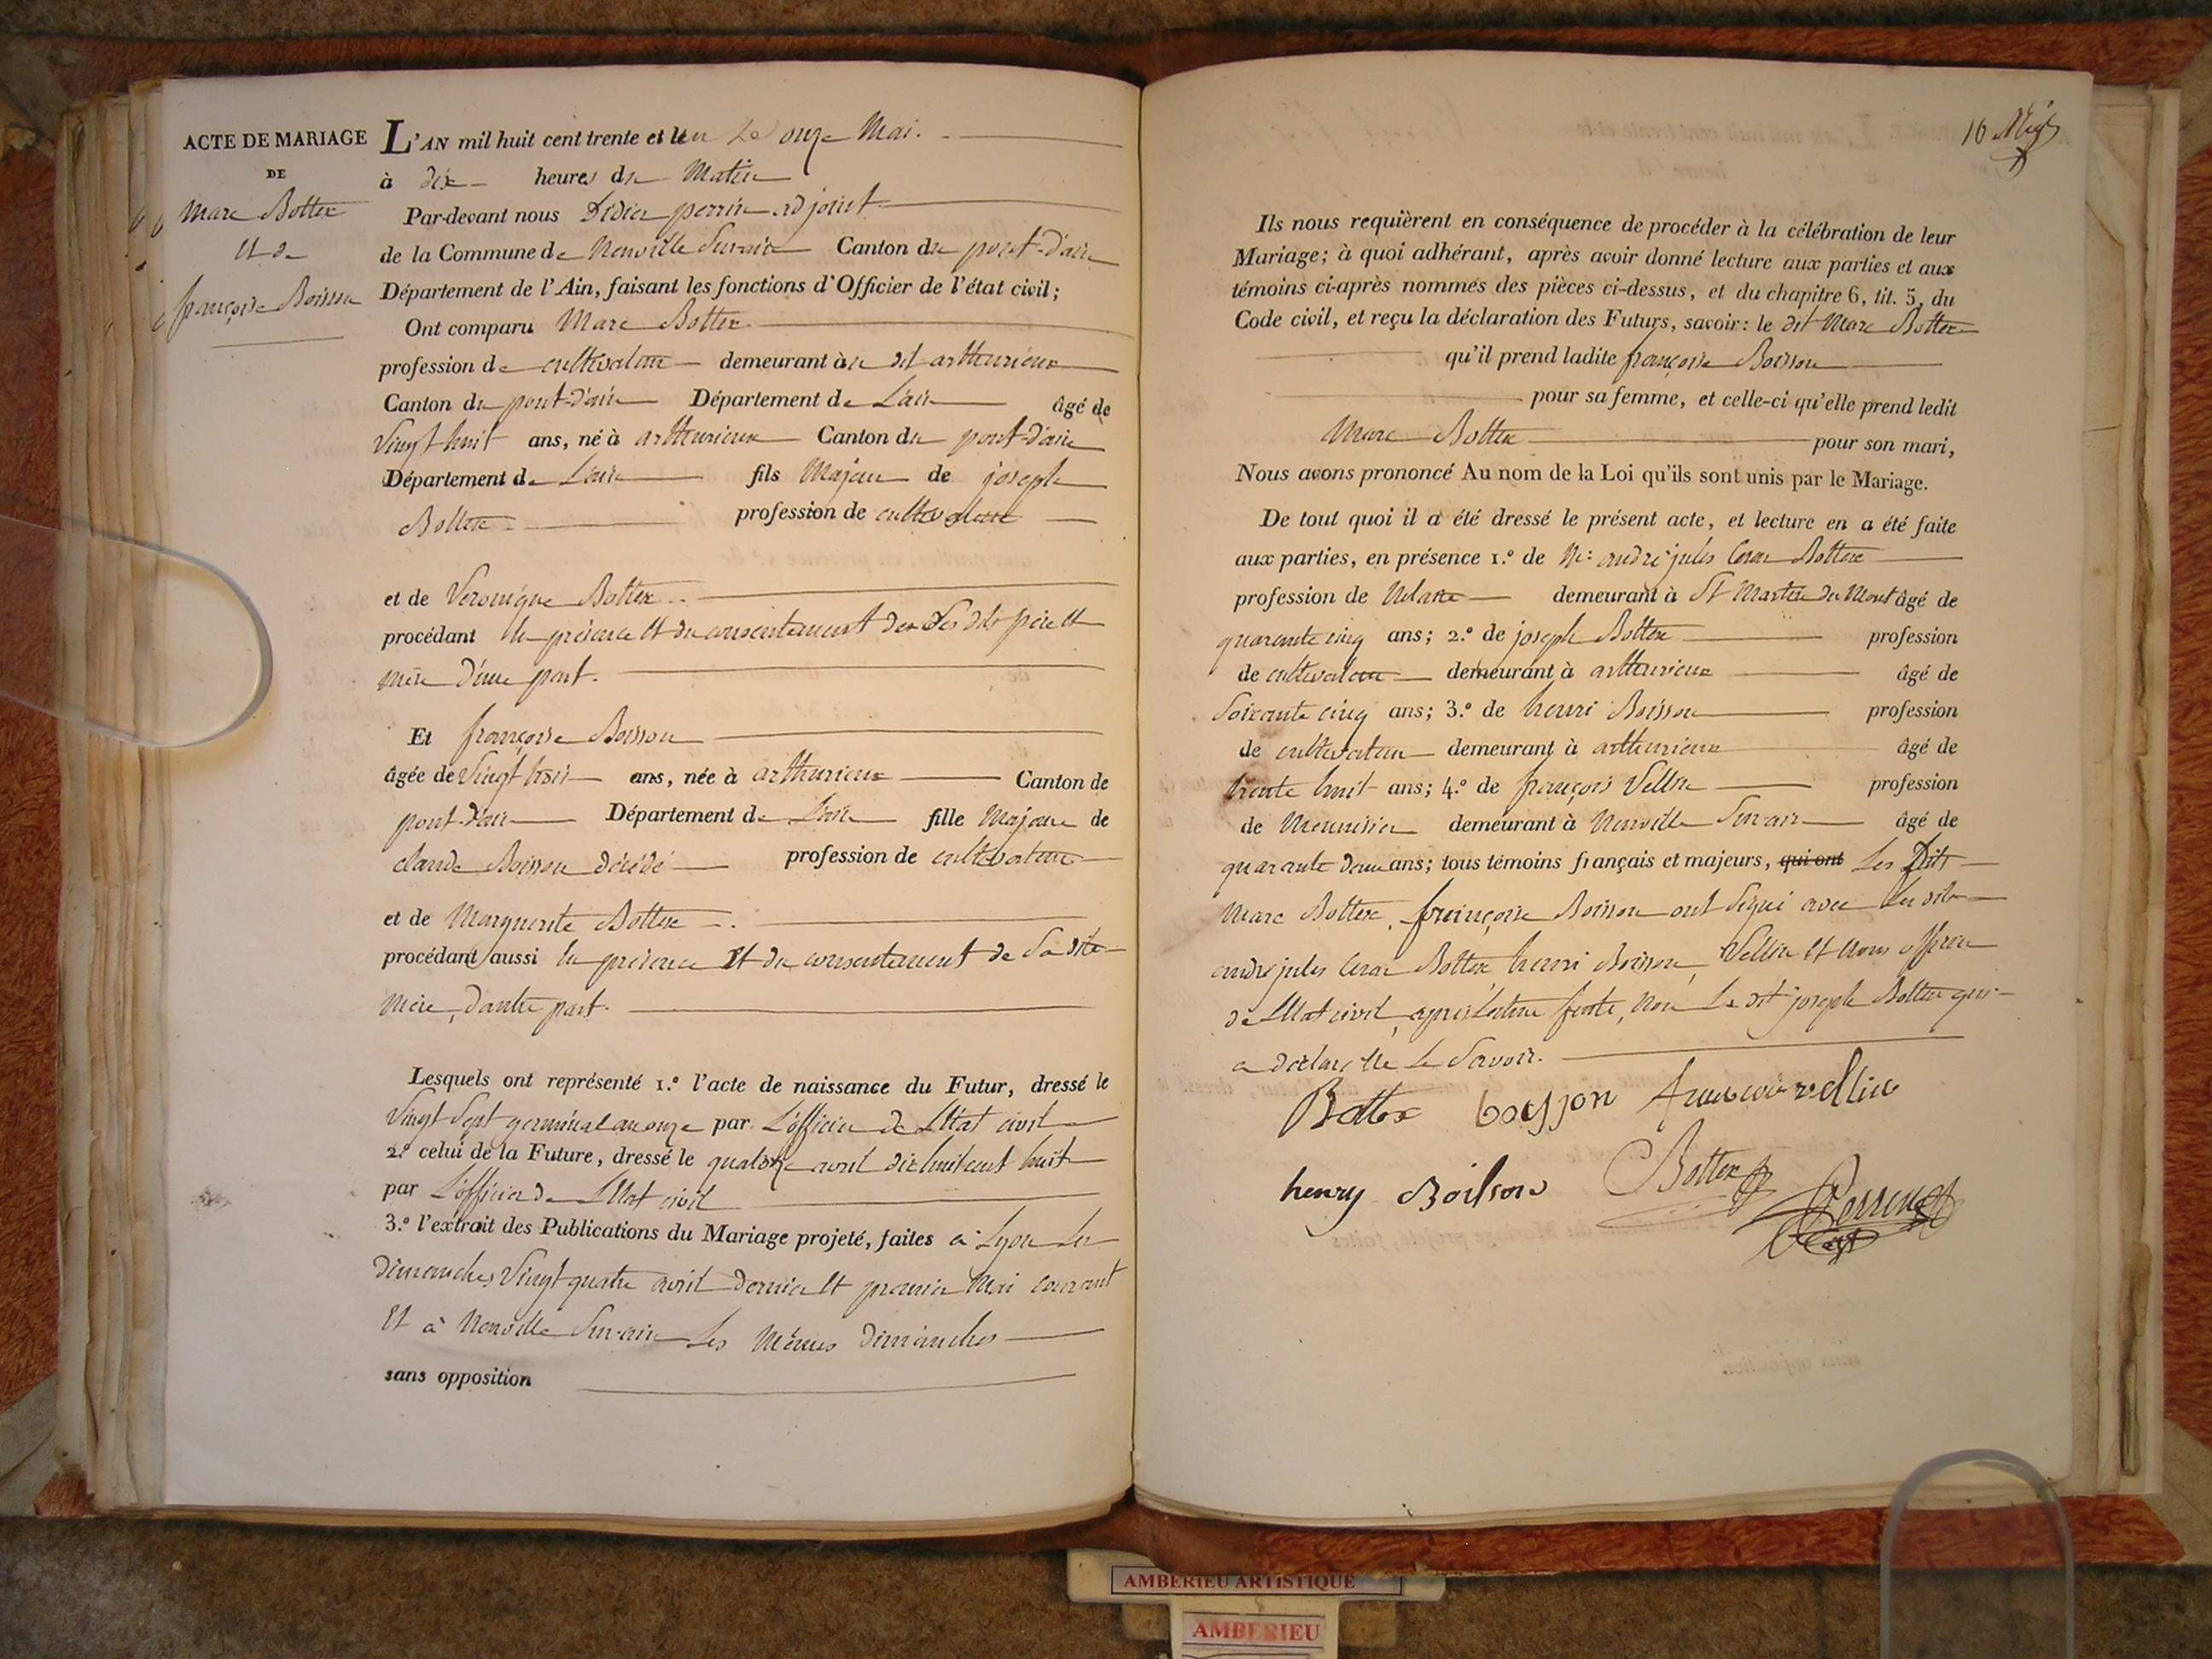 ACTE DE MARIAGE
DE
Marc Bottex
et de
françoise Boisson
L'AN mil huit cent trente et un Le onze Mai.
à dix heures du Matin
Par-devant nous Didier perrin adjoint
de la Commune de Neuville Surain Canton du pont-d'ain
Département de l'Ain, faisant les fonctions d'Officier de l'état civil;
Ont comparu Marc Bottex
profession de cultivateur demeurant au dit arthurieux
Canton du pont-d'ain Département de L'ain âgé de
Vingt huit ans, né à arthurieux Canton du pont-d'ain
Département de L'ain fils Majeur de joseph
Bottex profession de cultivateur
et de Véronique Bottex
procédant en présence et du consentement de ses dits père et
mère d'une part.
Et françoise Boisson
âgée de Vingt trois ans, née à arthurieux Canton de
pont-d'ain Département de L'ain fille Majeure de
claude Boisson décédé profession de cultivateur
et de Marguerite Bottex
procédant aussi en présence Et du consentement de Sa dite
Mère, d'autre part.
Lesquels ont représenté 1.º l'acte de naissance du Futur, dressé le
Vingt Sept germinal an onze par L'officier de L'Etat civil
2.º celui de la Future, dressé le quatorze avril dix huit cent huit
par L'officier de L'Etat civil
3.º l'extrait des Publications du Mariage projeté, faites à Lyon Les
dimanches Vingt quatre avril dernier Et premier Mai courant
Et à Neuville Sur-ain Les Mêmes dimanches
sans opposition
Ils nous requièrent en conséquence de procéder à la célébration de leur
Mariage; à quoi adhérant, après avoir donné lecture aux parties et aux
témoins ci-après nommés des pièces ci-dessus, et du chapitre 6, tit. 5, du
Code civil, et reçu la déclaration des Futurs, savoir: le dit Marc Bottex
qu'il prend ladite françoise Boisson
pour sa femme, et celle-ci qu'elle prend ledit
Marc Bottex pour son mari,
Nous avons prononcé Au nom de la Loi qu'ils sont unis par le Mariage.
De tout quoi il a été dressé le présent acte, et lecture en a été faite
aux parties, en présence 1.º de Mr andré jules César Bottex
profession de Notaire demeurant à St Martin du Mont âgé de
quarante cinq ans; 2.º de joseph Bottex profession
de cultivateur demeurant à arthurieux âgé de
Soixante cinq ans; 3.º de henri Boisson profession
de cultivateur demeurant à arthurieux âgé de
trente huit ans; 4.º de françois Vellin profession
de Menuisier demeurant à Neuville Surain âgé de
quarante deux ans; tous témoins français et majeurs, qui ont Les Dits
Marc Bottex, françoise Boisson ont Signé avec Les dits
andré jules César Bottex henri Boisson, Vellin et Nous officier
de L'Etat civil, après Lecture faite, Non Le dit joseph Bottex qui
a déclaré ne Le Savoir.
Bottex boisson francois vellin
henry Boisson Bottex Perrin
AMBERIEU ARTISTIQUE
AMBERIEU